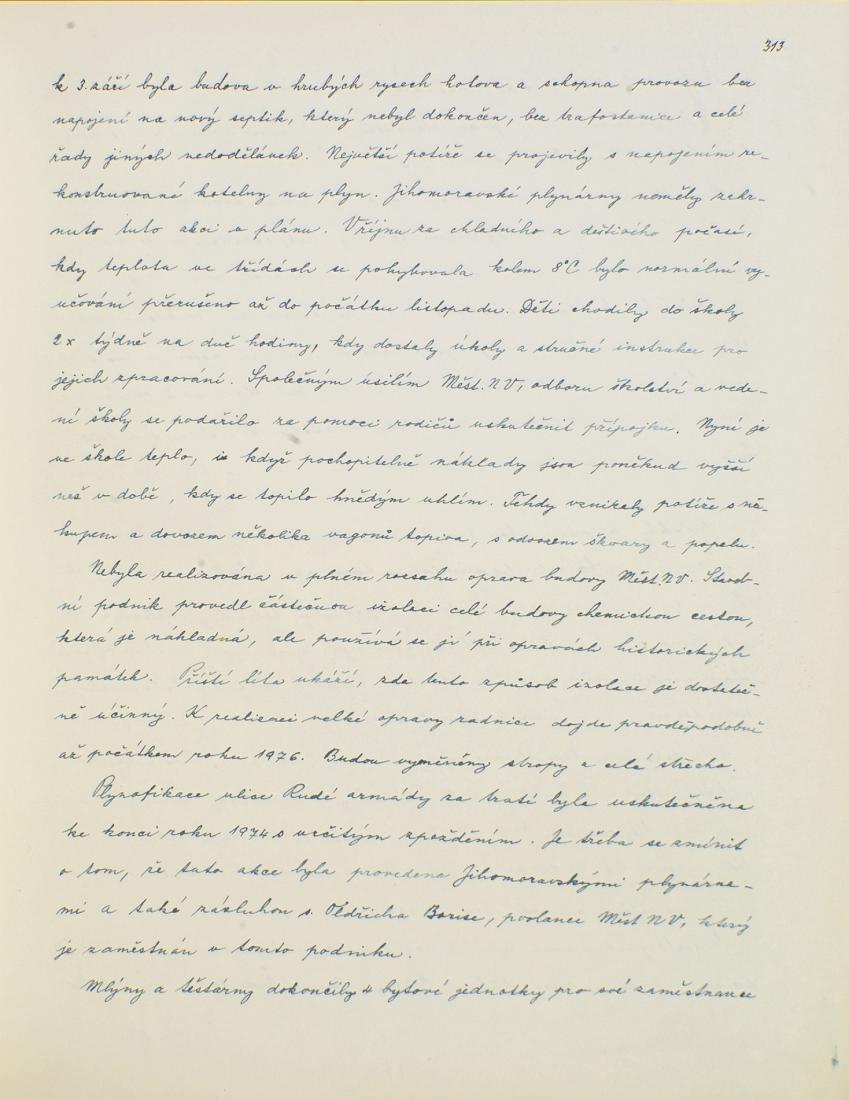 313
k 3. září byla budova v hrubých rysech hotova a schopna provozu bez
napojení na nový septik, který nebyl dokončen, bez trafostanice a celé
řady jiných nedodělávek. Největší potíže se projevily s napojením re-
konstruované kotelny na plyn. Jihomoravské plynárny neměly zahr-
nuto tuto akci v plánu. V říjnu za chladného a deštivého počasí,
kdy teplota ve třídách se pohybovala kolem 8°C bylo normální vy-
učování přerušeno až do počátku listopadu. Děti chodily do školy
2x týdně na dvě hodiny, kdy dostaly úkoly a stručné instrukce pro
jejich zpracování. Společným úsilím Měst. NV, odboru školství a vede-
ní školy se podařilo za pomoci rodičů uskutečnit přípojku. Nyní je
ve škole teplo, i když pochopitelně náklady jsou poněkud vyšší
než v době, kdy se topilo hnědým uhlím. Tehdy vznikaly potíže s ná-
kupem a dovozem několika vagonů topiva, s odvozem škvary a popelu.
Nebyla realizována v plném rozsahu oprava budovy Měst. NV. Staveb-
ní podnik provedl částečnou izolaci celé budovy chemickou cestou,
která je nákladná, ale používá se jí při opravách historických
památek. Příští léta ukáží, zda tento způsob izolace je dostateč-
ně účinný. K realizaci velké opravy radnice dojde pravděpodobně
až počátkem roku 1976. Budou vyměněny stropy a celá střecha.
Plynofikace ulice Rudé armády za tratí byla uskutečněna
ke konci roku 1974 s určitým zpožděním. Je třeba se zmínit
o tom, že tato akce byla provedena Jihomoravskými plynárna-
mi a také zásluhou s. Oldřicha Borise, poslance Měst NV, který
je zaměstnán v tomto podniku.
Mlýny a těstárny dokončily 4 bytové jednotky pro své zaměstnance